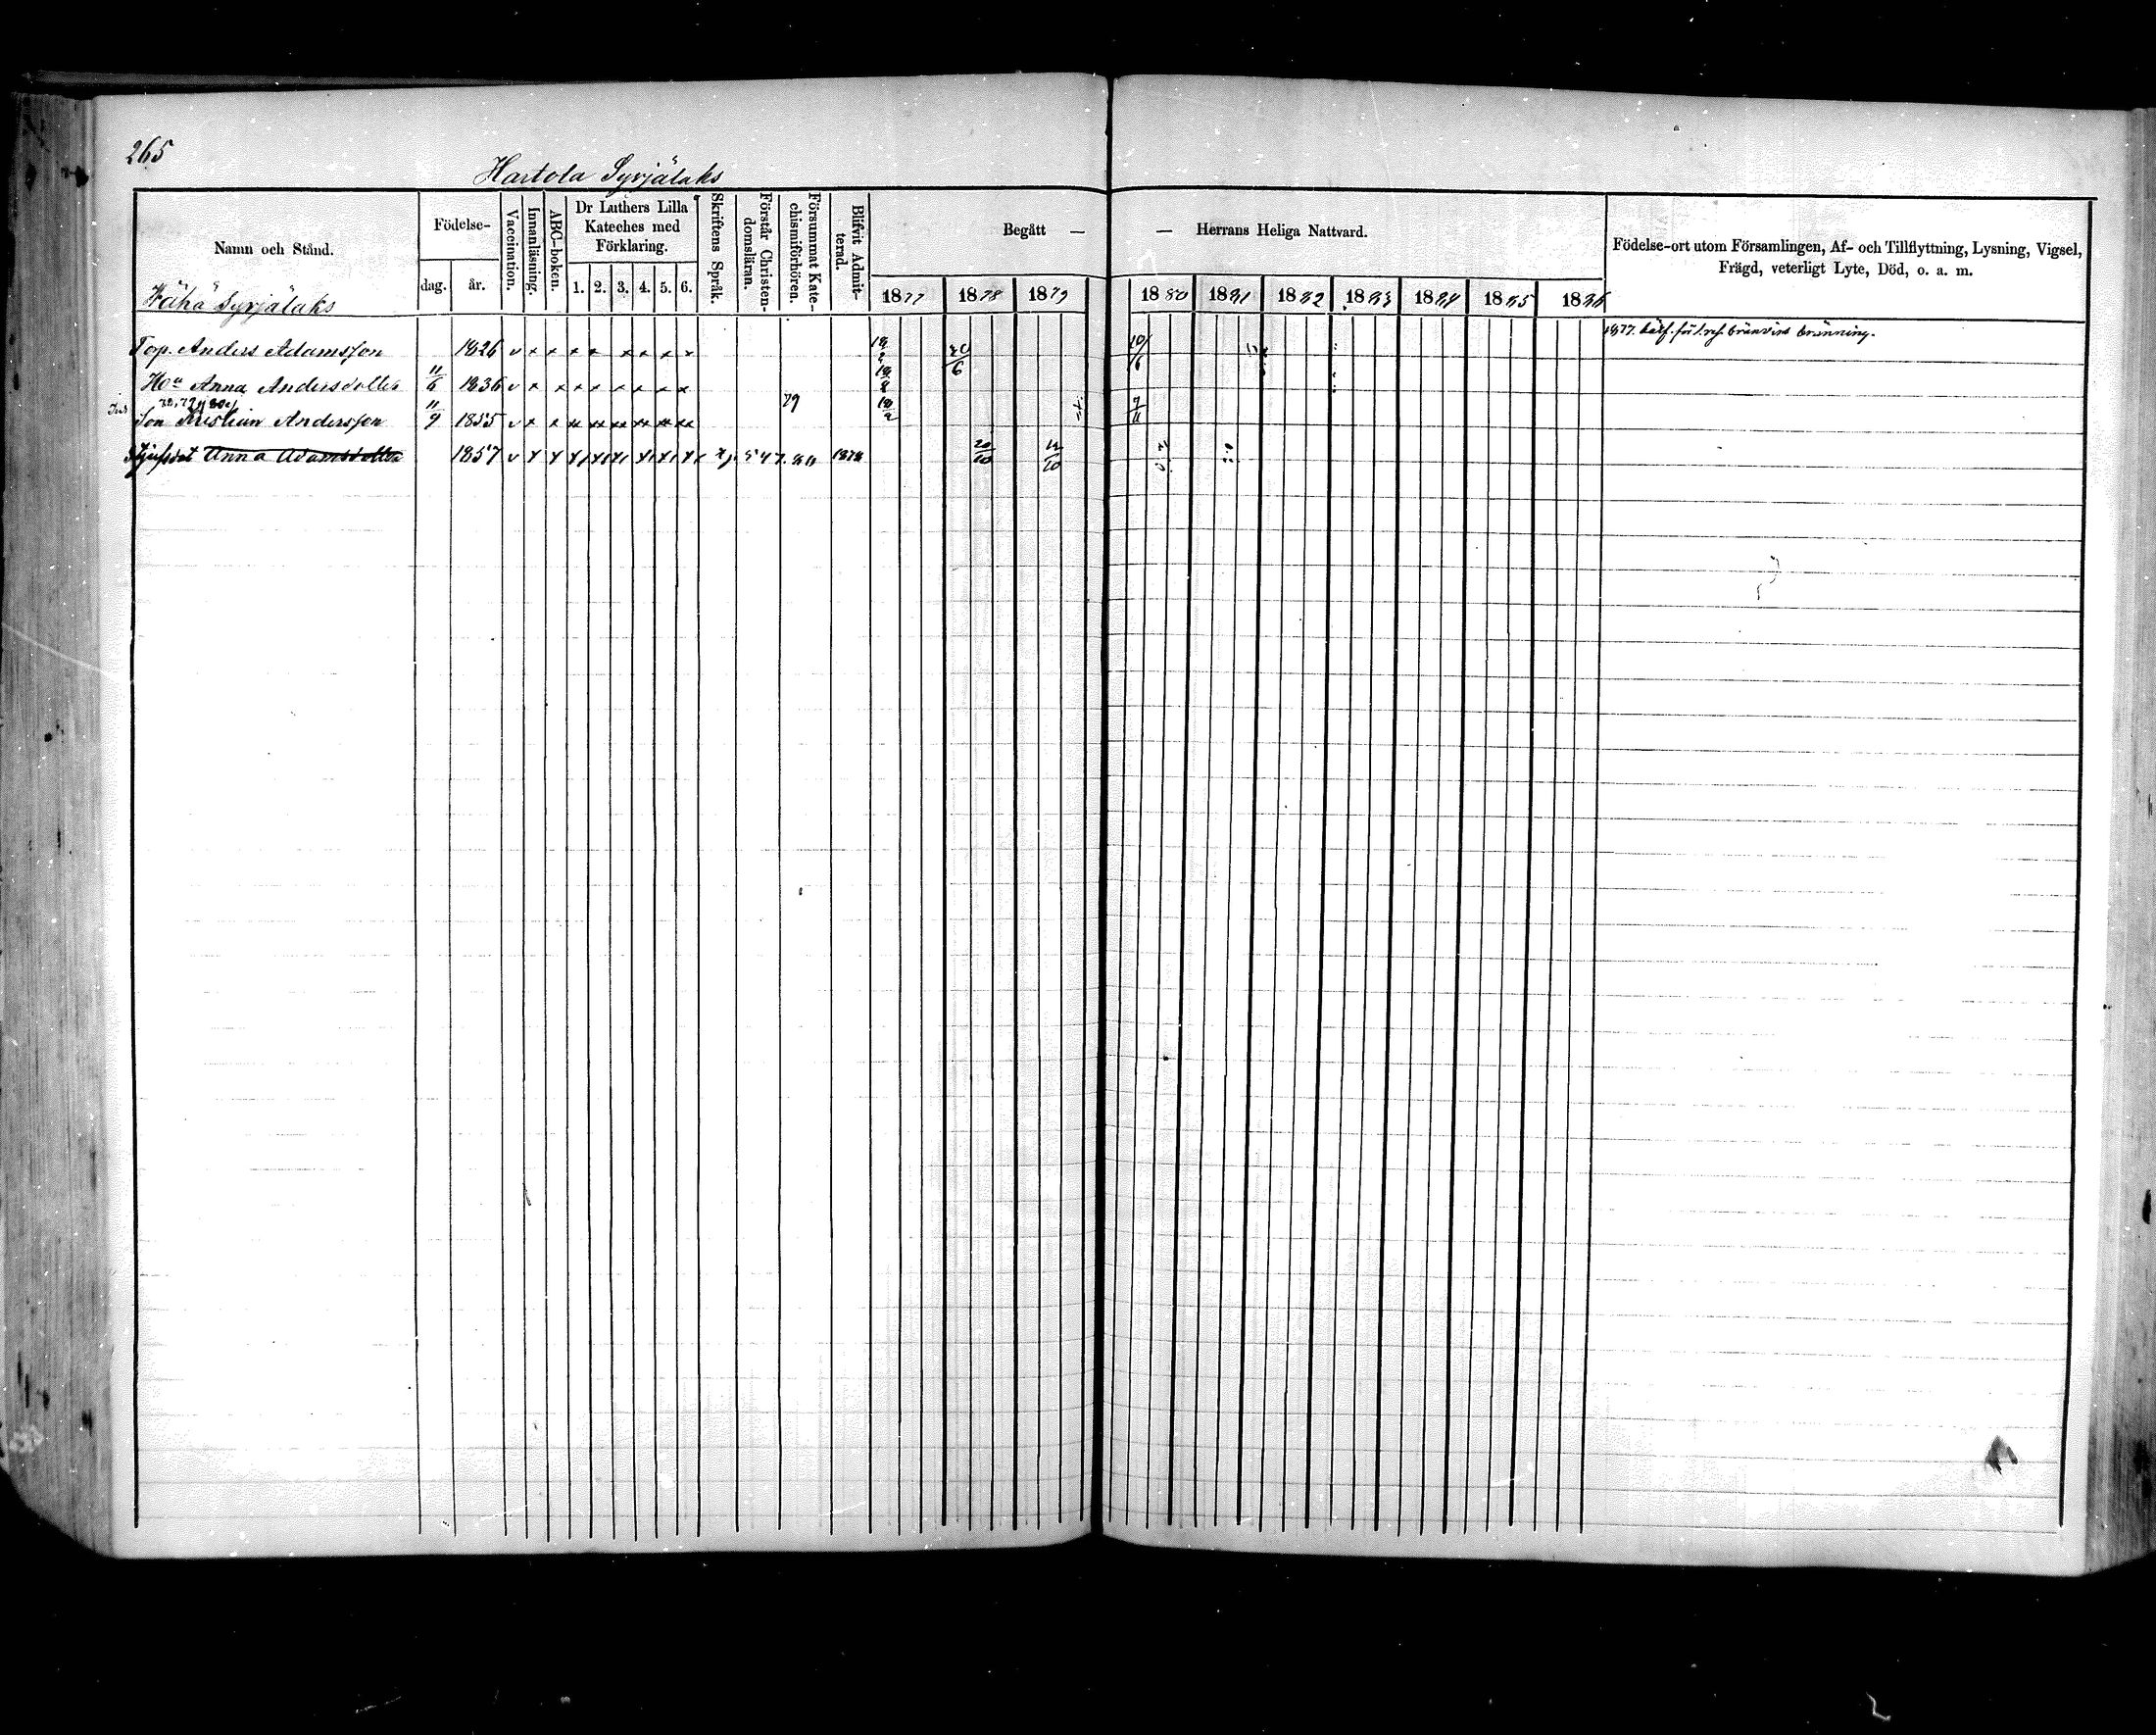 265
Hartola Syrjälaks
Namn och Stånd.
Födelse-
dag. år.
Vaccination.
Innanläsning.
ABC-boken.
Dr Luthers Lilla
Kateches med
Förklaring.
1. 2. 3. 4. 5. 6.
Skriftens Språk.
Förstår Christen-
domsläran.
Försummat Kate-
chismiförhören.
Blifvit Admit-
terad.
Begått — — Herrans Heliga Nattvard.
1877 1878 1879 1880 1881 1882 1883 1884 1885 1886
Födelse-ort utom Församlingen, Af- och Tillflyttning, Lysning, Vigsel,
Frägd, veterligt Lyte, Död, o. a. m.
Wähä Syrjälaks
1877. bränvins bränning.
Top. Anders Adamsson 1826 v x x x x x x x x 20/6 10/6
Hou Anna Andersdotter 11/6 1836 v x x x x x x x x
Son Kristian Andersson 11/9 1855 v x x x x x x x x 79 7/11
Anna Adamsdotter 1857 v 1878 20/10 12/10